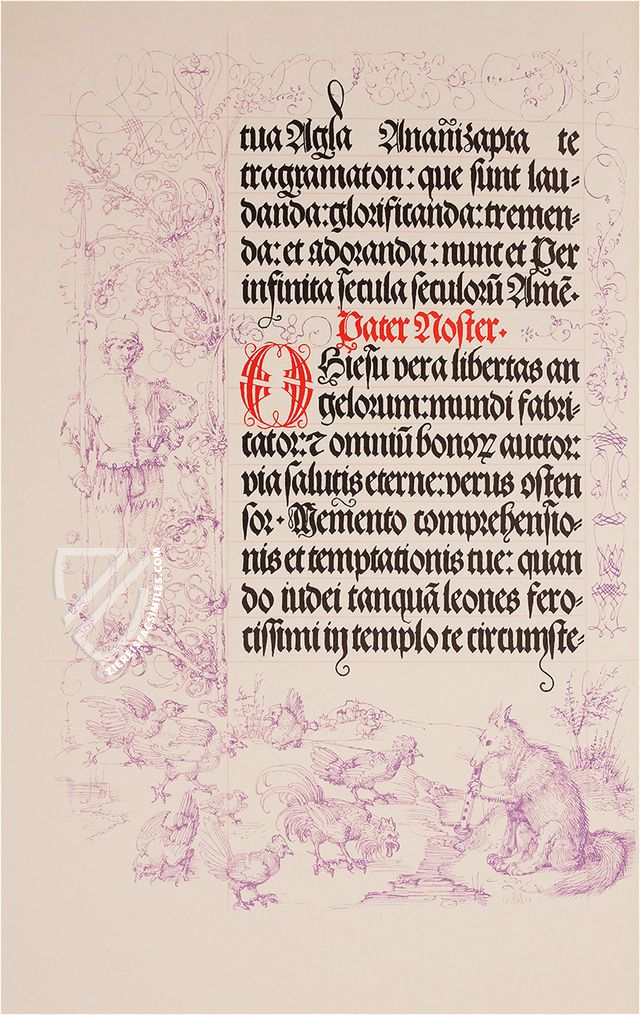 tua Agla Anan̄izapta te
tragramaton: que sunt lau-
danda: glorificanda: tremen-
da: et adoranda: nunc et Per
infinita secula seculorū Amē.
Pater Noster.
O Hiesu vera libertas an
gelorum: mundi fabri-
cator: ⁊ omniū bonoꝝ auctor:
via salutis eterne: verus ꝯsten
sor. Memento comprehensio-
nis et temptationis tue: quan
do iudei tanquā leones fero-
cissimi in templo te circumste-
ZIEREIS FACSIMILES.COM